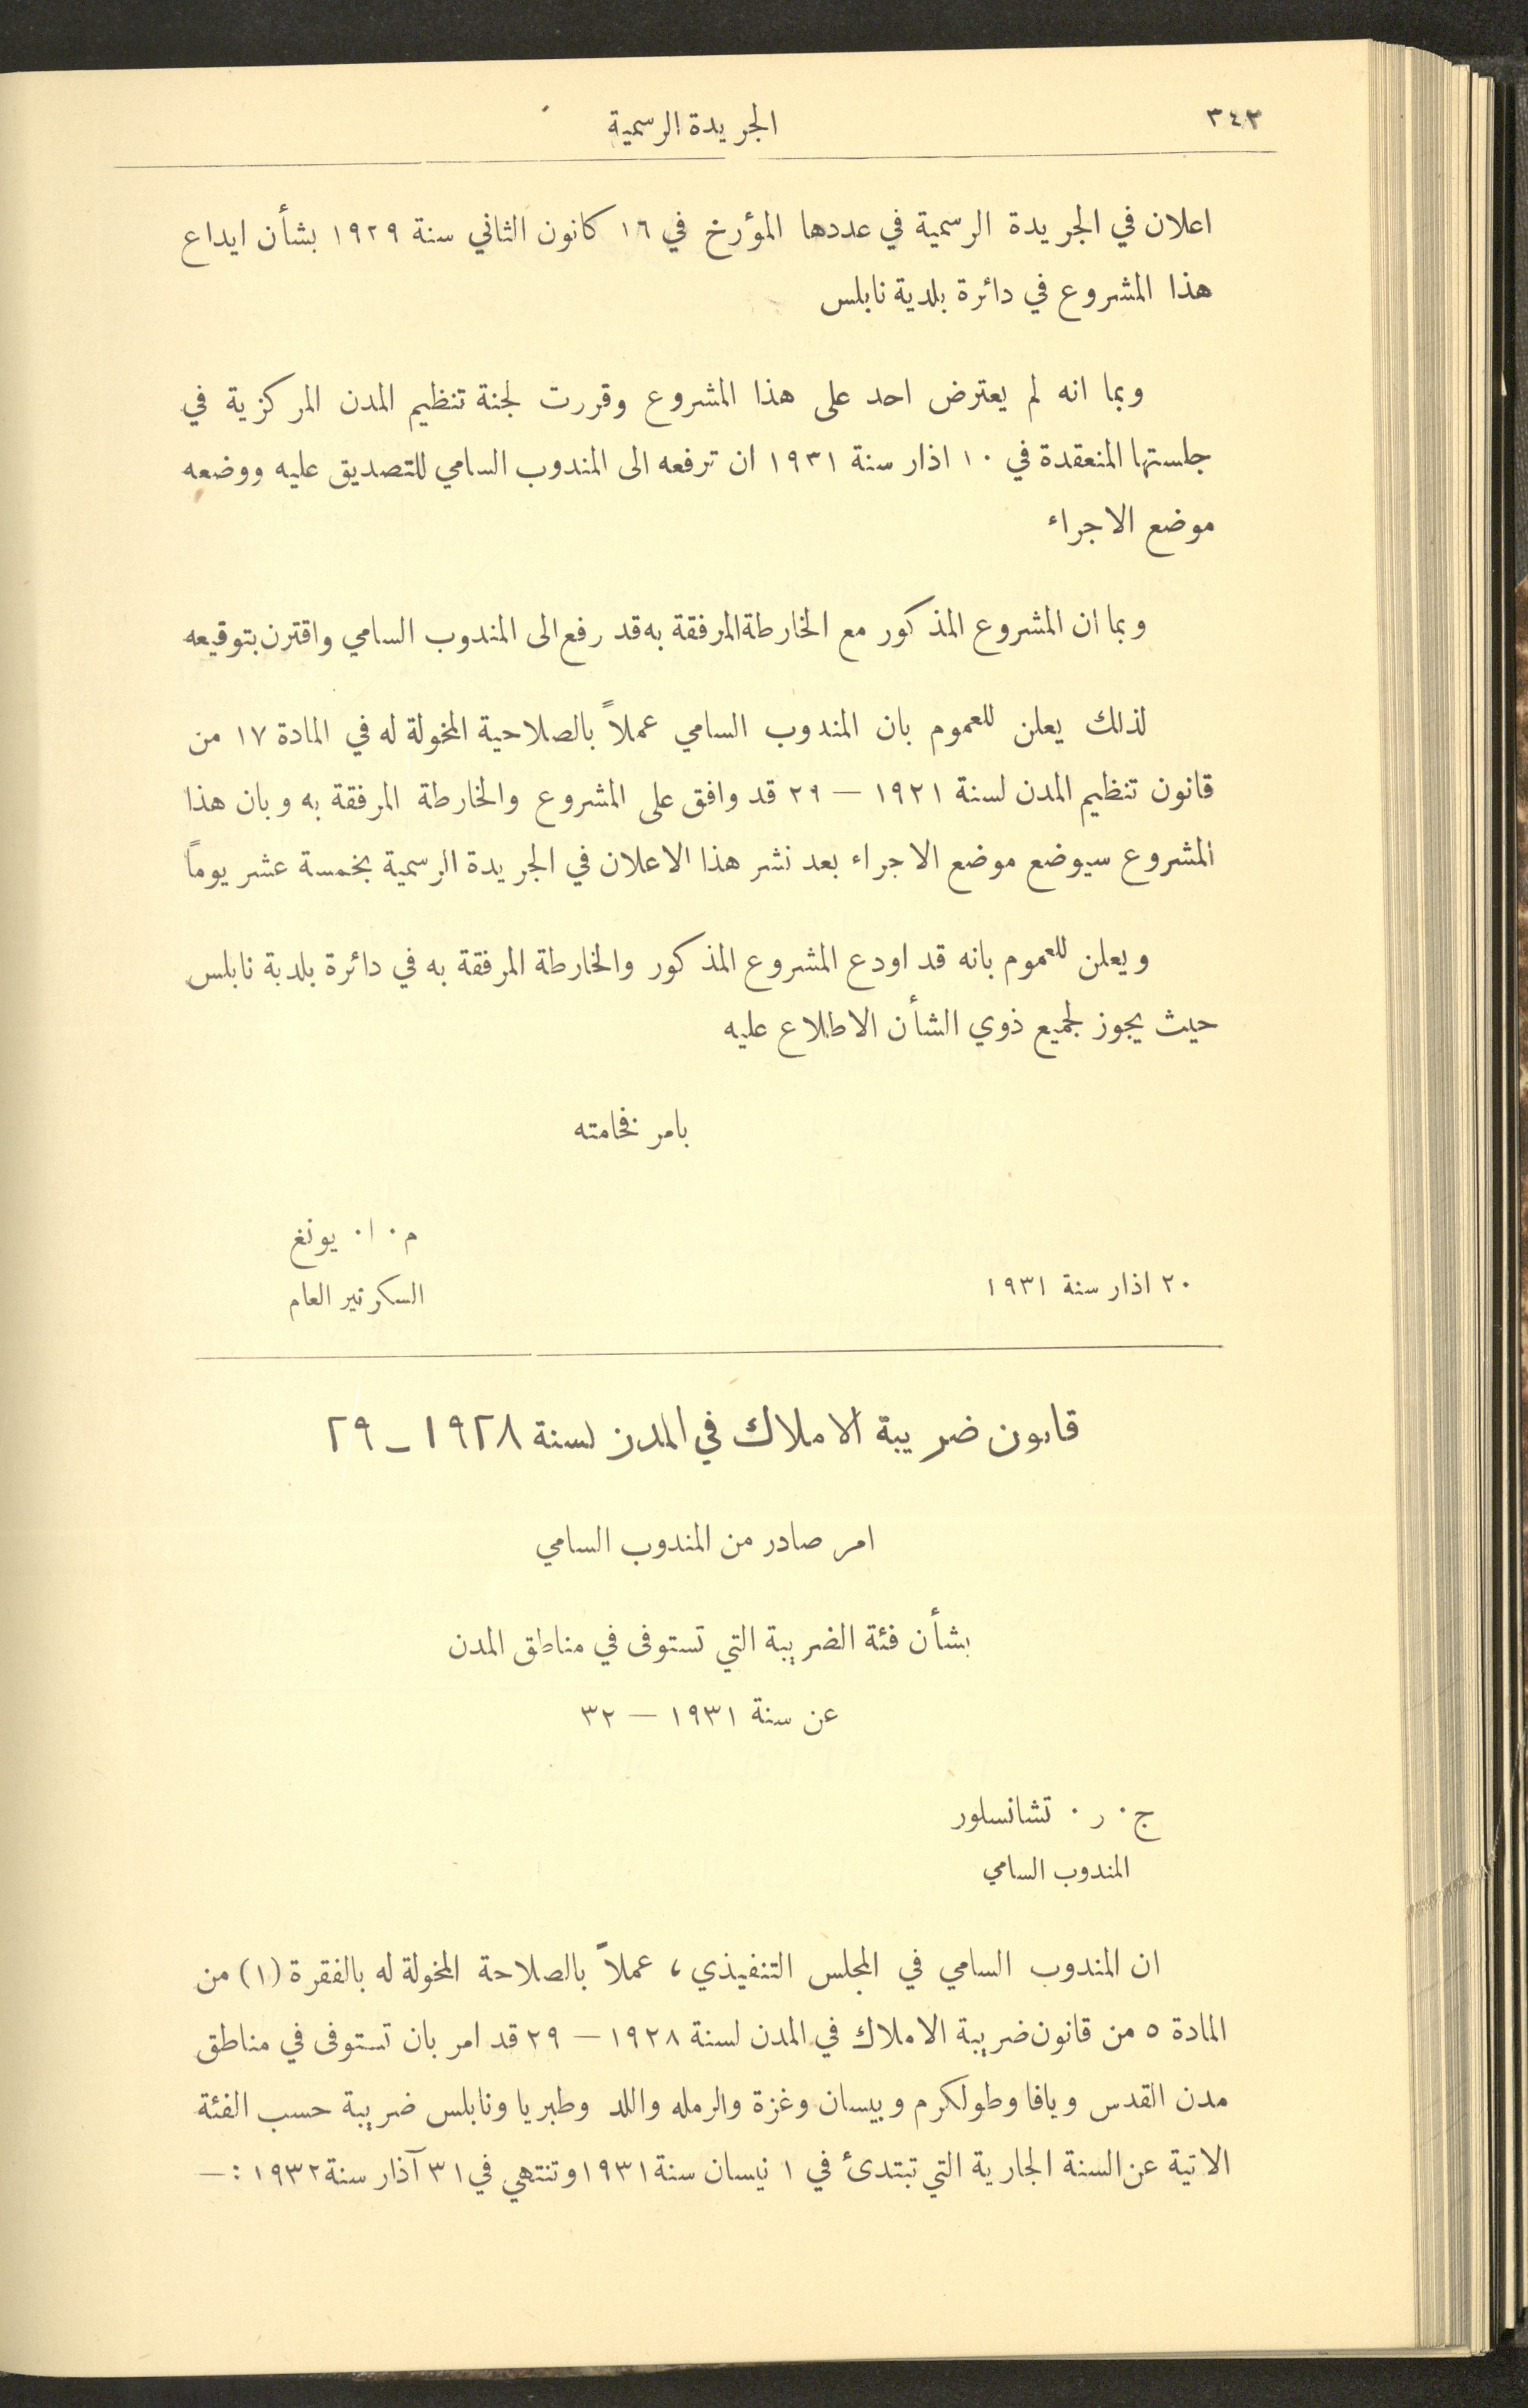 ٣٤٢
الجريدة الرسمية
اعلان في الجريدة الرسمية في عددها المؤرخ في ١٦ كانون الثاني سنة ١٩٢٩ بشأن ايداع
هذا المشروع في دائرة بلدية نابلس
وبما انه لم يعترض احد على هذا المشروع وقررت لجنة تنظيم المدن المركزية في
جلستها المنعقدة في ١٠ اذار سنة ١٩٣١ ان ترفعه الى المندوب السامي للتصديق عليه ووضعه
موضع الاجراء
وبما ان المشروع المذكور مع الخارطة المرفقة به قد رفع الى المندوب السامي واقترن بتوقيعه
لذلك يعلن للعموم بان المندوب السامي عملاً بالصلاحية المخولة له في المادة ١٧ من
قانون تنظيم المدن لسنة ١٩٢١ — ٢٩ قد وافق على المشروع والخارطة المرفقة به وبان هذا
المشروع سيوضع موضع الاجراء بعد نشر هذا الاعلان في الجريدة الرسمية بخمسة عشر يوماً
ويعلن للعموم بانه قد اودع المشروع المذكور والخارطة المرفقة به في دائرة بلدية نابلس
حيث يجوز لجميع ذوي الشأن الاطلاع عليه
بامر فخامته
م٠ ا٠ يونغ
٢٠ اذار سنة ١٩٣١
السكرتير العام
قانون ضريبة الاملاك في المدن لسنة ١٩٢٨ ـ ٢٩
امر صادر من المندوب السامي
بشأن فئة الضريبة التي تستوفى في مناطق المدن
عن سنة ١٩٣١ — ٣٢
ج٠ ر٠ تشانسلور
المندوب السامي
ان المندوب السامي في المجلس التنفيذي، عملاً بالصلاحة المخولة له بالفقرة (١) من
المادة ٥ من قانون ضريبة الاملاك في المدن لسنة ١٩٢٨ — ٢٩ قد امر بان تستوفى في مناطق
مدن القدس ويافا وطولكرم وبيسان وغزة والرمله واللد وطبريا ونابلس ضريبة حسب الفئة
الاتية عن السنة الجارية التي تبتدئ في ١ نيسان سنة ١٩٣١ وتنتهي في ٣١ آذار سنة ١٩٣٢ :—